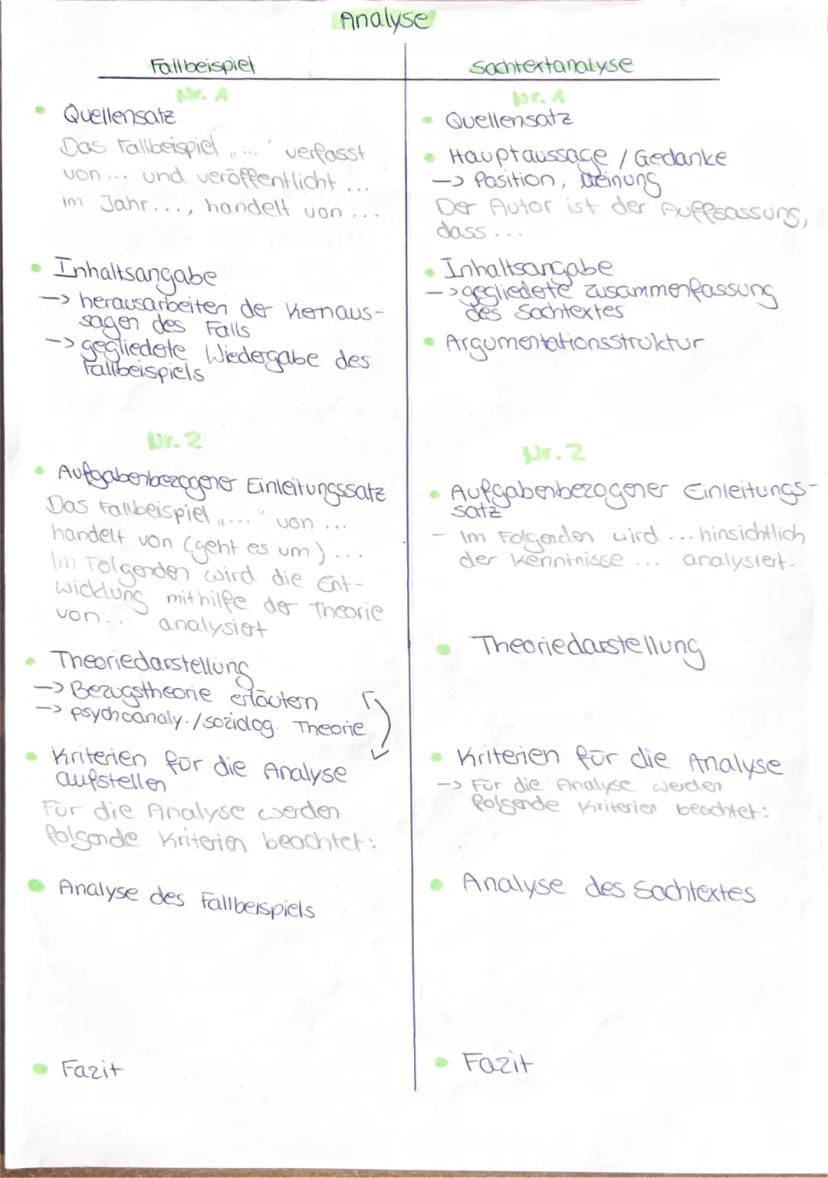 Analyse
Fallbeispiel
Nr. 1
• Quellensatz
Das Fallbeispiel „..." verfasst
von ... und veröffentlicht ...
im Jahr ..., handelt von ...
• Inhaltsangabe
-> herausarbeiten der Kernaus-
sagen des Falls
-> gegliedete Wiedergabe des
Fallbeispiels
Nr. 2
• Aufgabenbezogener Einleitungssatz
Das Fallbeispiel „..." von ...
handelt von (geht es um) ...
Im Folgenden wird die Ent-
wicklung mithilfe der Theorie
von ... analysiert
• Theoriedarstellung
-> Bezugstheorie erläutern
-> psychoanaly./soziolog. Theorie
• Kriterien für die Analyse
aufstellen
Für die Analyse werden
folgende Kriterien beachtet:
• Analyse des Fallbeispiels
• Fazit
Sachtextanalyse
Nr. 1
• Quellensatz
• Hauptaussage / Gedanke
-> Position, Meinung
Der Autor ist der Auffsassung,
dass ...
• Inhaltsangabe
-> gegliedete Zusammenfassung
des Sachtextes
• Argumentationsstruktur
Nr. 2
• Aufgabenbezogener Einleitungs-
satz
- Im Folgenden wird ... hinsichtlich
der Kenntnisse ... analysiert.
• Theoriedarstellung
• Kriterien für die Analyse
-> Für die Analyse werden
folgende Kriterien beachtet:
• Analyse des Sachtextes
• Fazit